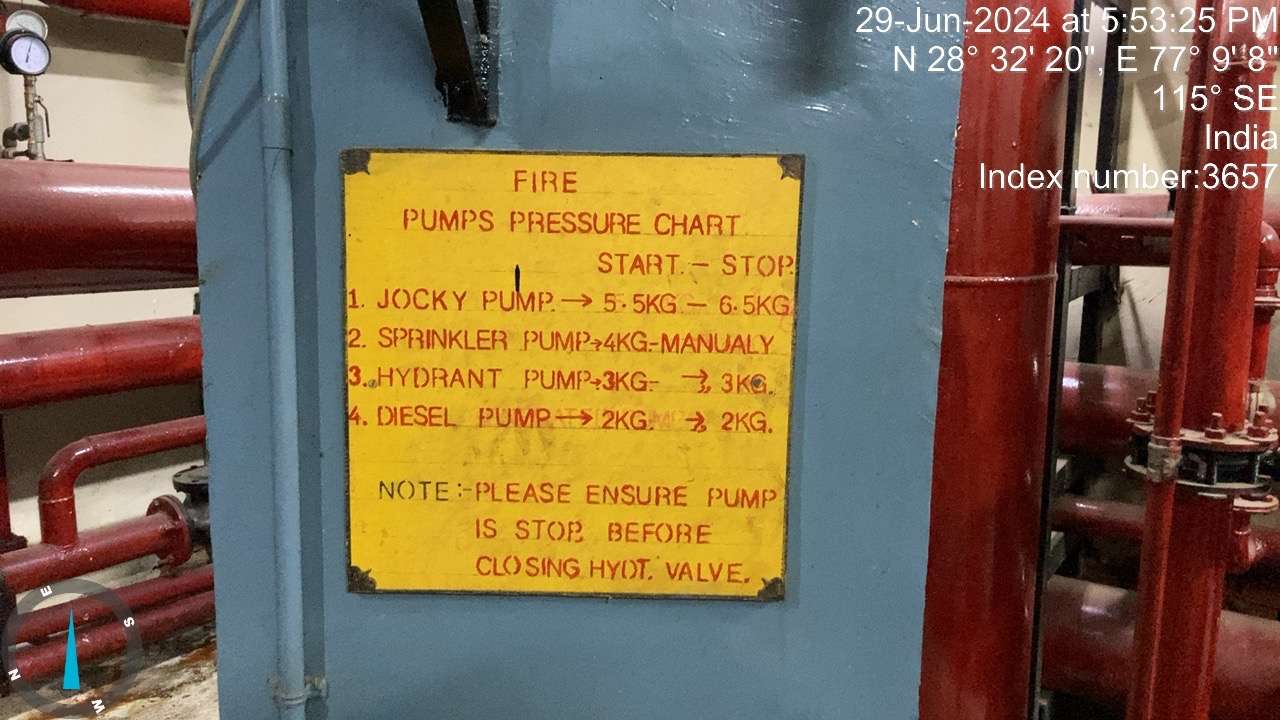 29-Jun-2024 at 5:53:25 PM
N 28° 32' 20", E 77° 9' 8"
115° SE
India
Index number:3657
FIRE
PUMPS PRESSURE CHART
START. - STOP.
1. JOCKY PUMP. → 5.5KG - 6.5KG
2. SPRINKLER PUMP→4KG-MANUALY
3. HYDRANT PUMP→3KG- → 3KG.
4. DIESEL PUMP → 2KG. → 2KG.
NOTE:-PLEASE ENSURE PUMP
IS STOP. BEFORE
CLOSING HYDT. VALVE.
E
S
N
W